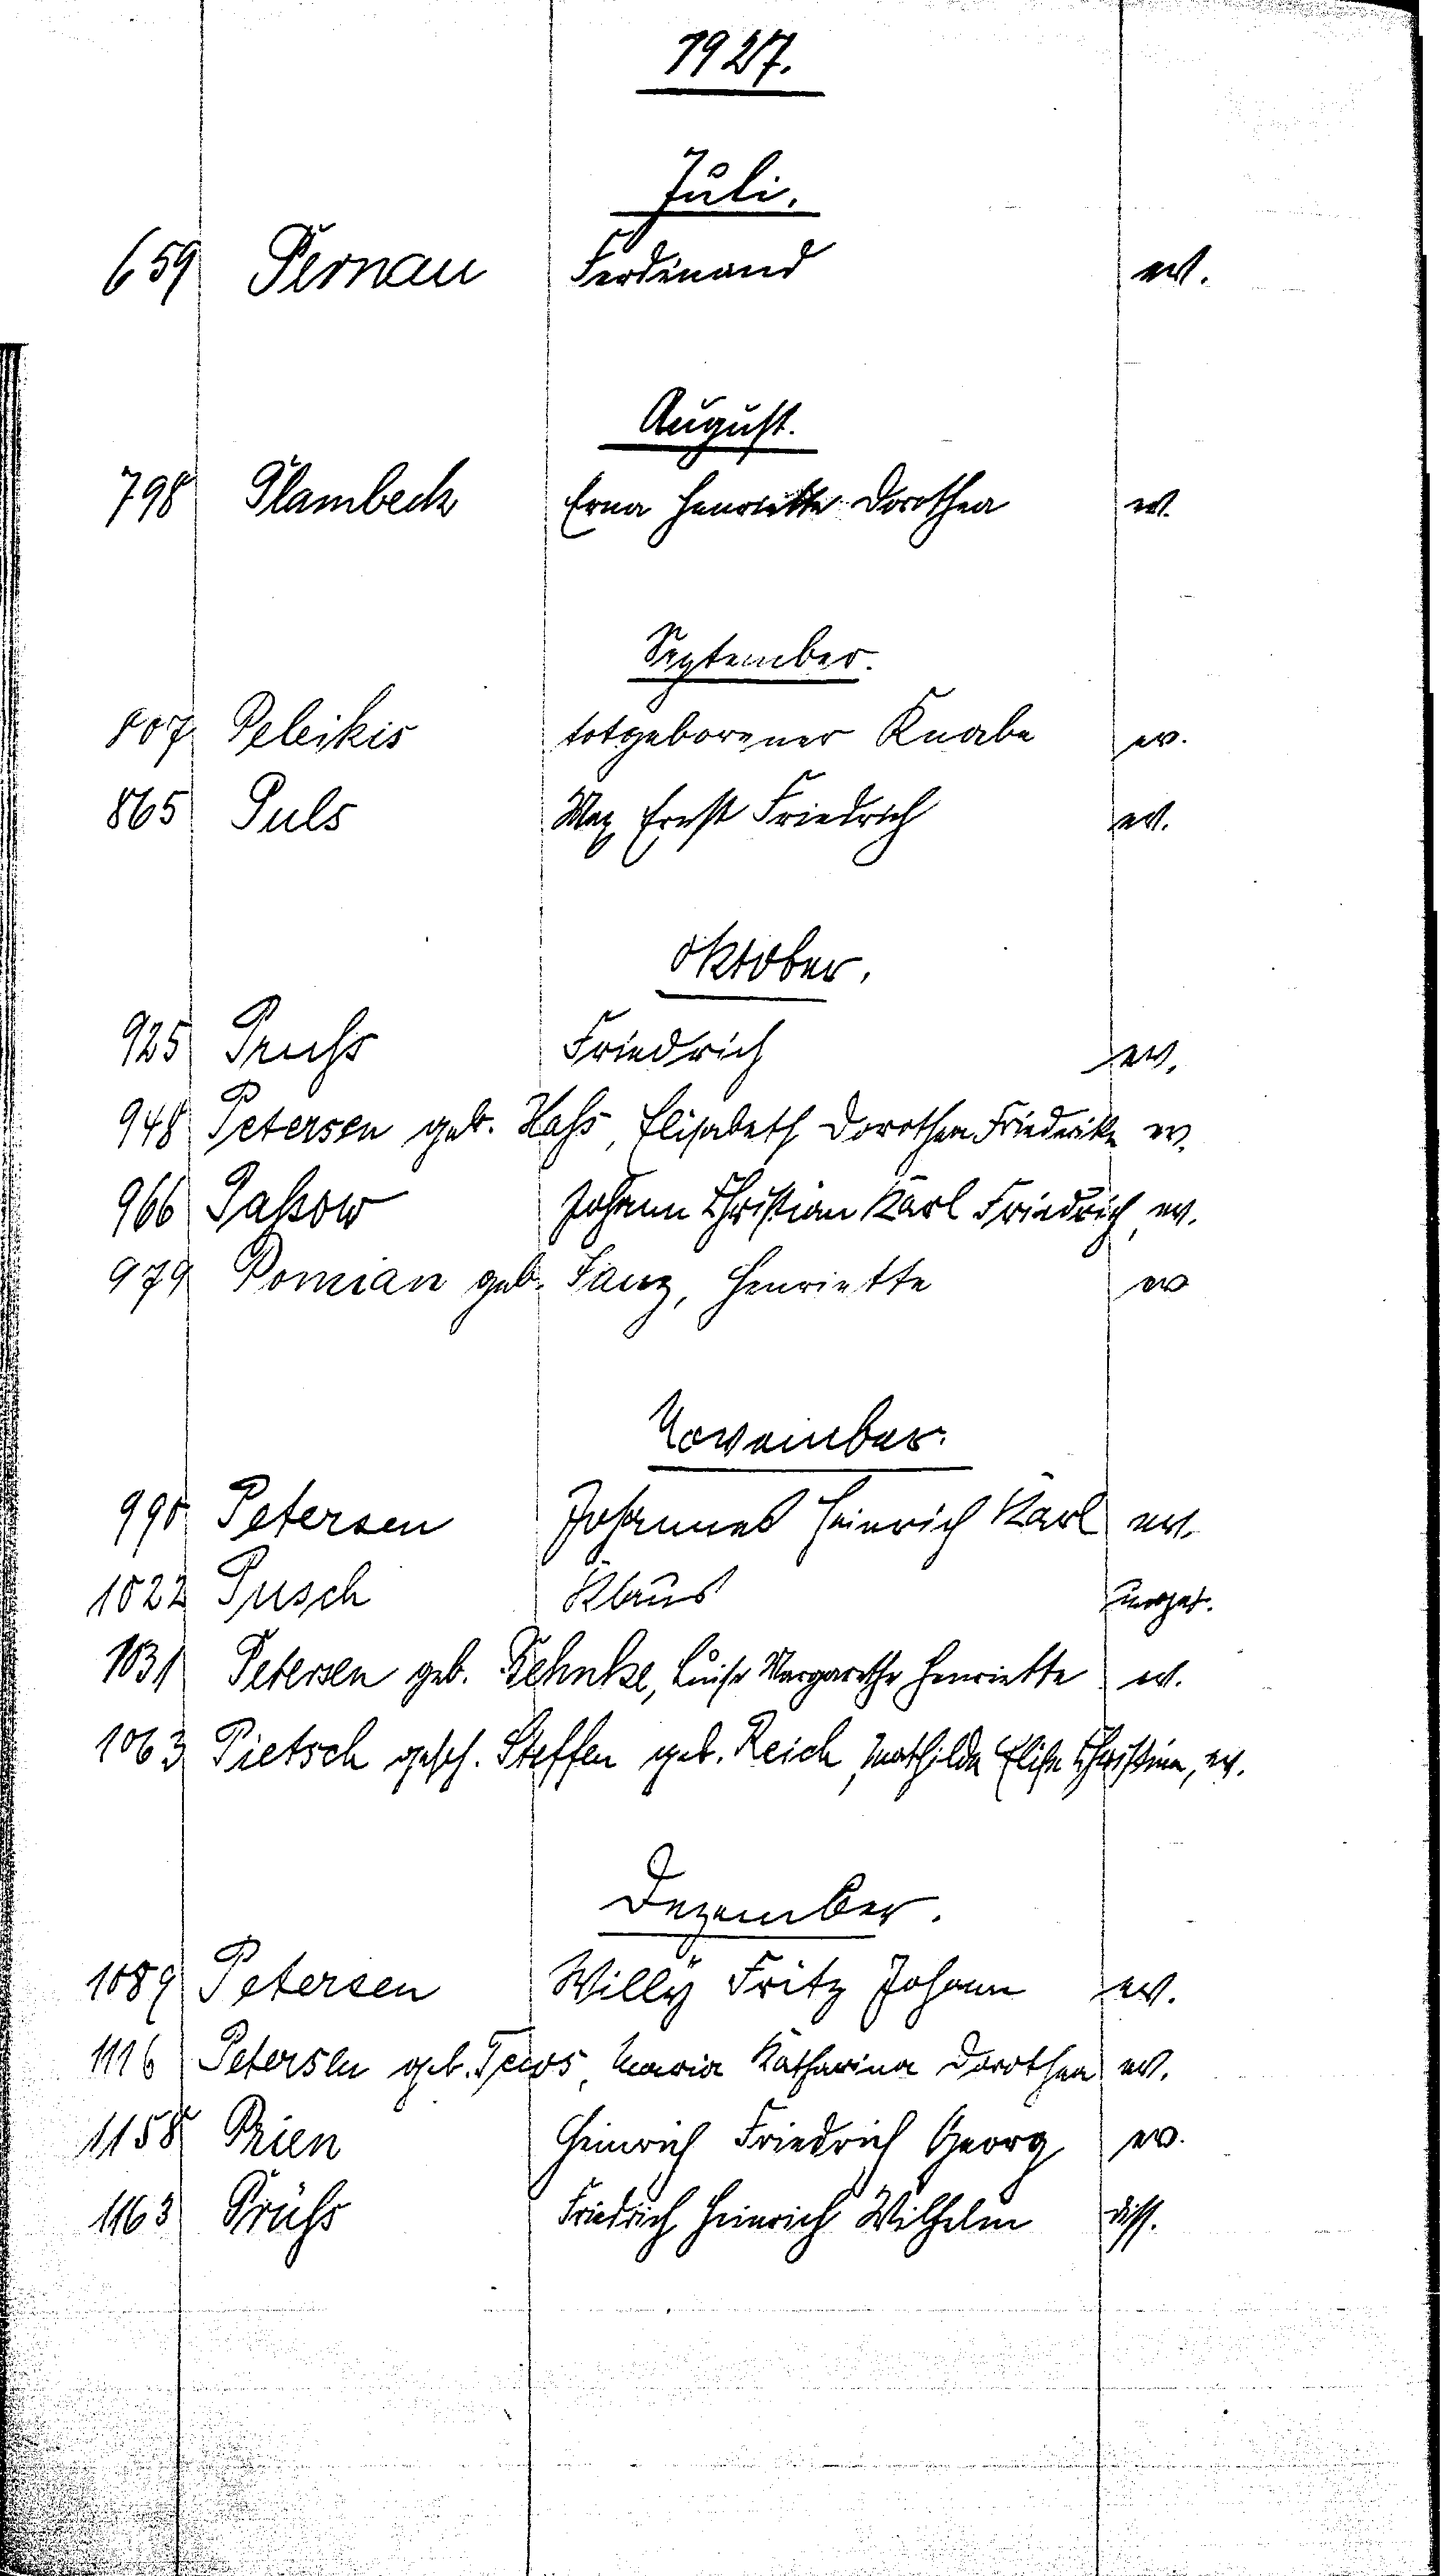 1927.
Juli.
659 Pernau Ferdinand ev.
August.
798 Plambeck Erna Henriette Dorothea ev.
September.
807 Peleikis totgeborener Knabe ev.
865 Puls Max Ernst Friedrich ev.
Oktober.
925 Pruhs Friedrich ev.
948 Petersen geb. Haß, Elisabeth Dorothea Friederike ev.
966 Paßow Johann Christian Karl Friedrich, ev.
979 Pomian geb. Sanz, Henriette ev
November.
990 Petersen Johannes Heinrich Karl ev.
1022 Pusch Klaus
1031 Petersen geb. Behnke, Luise Margarethe Henriette ev.
1063 Pietsch gesch. Steffen geb. Reich, Mathilda Elise Christine, ev.
Dezember.
1089 Petersen Willy Fritz Johann ev.
1116 Petersen geb. Tews, Maria Katharina Dorothea ev.
1158 Prien Heinrich Friedrich Georg ev.
1163 Prühs Friedrich Heinrich Wilhelm diss.